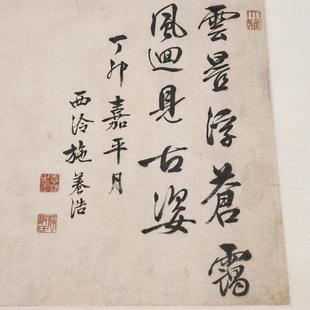 雲景浮蒼靄
風迴見古姿
丁卯嘉平月
西泠施養浩